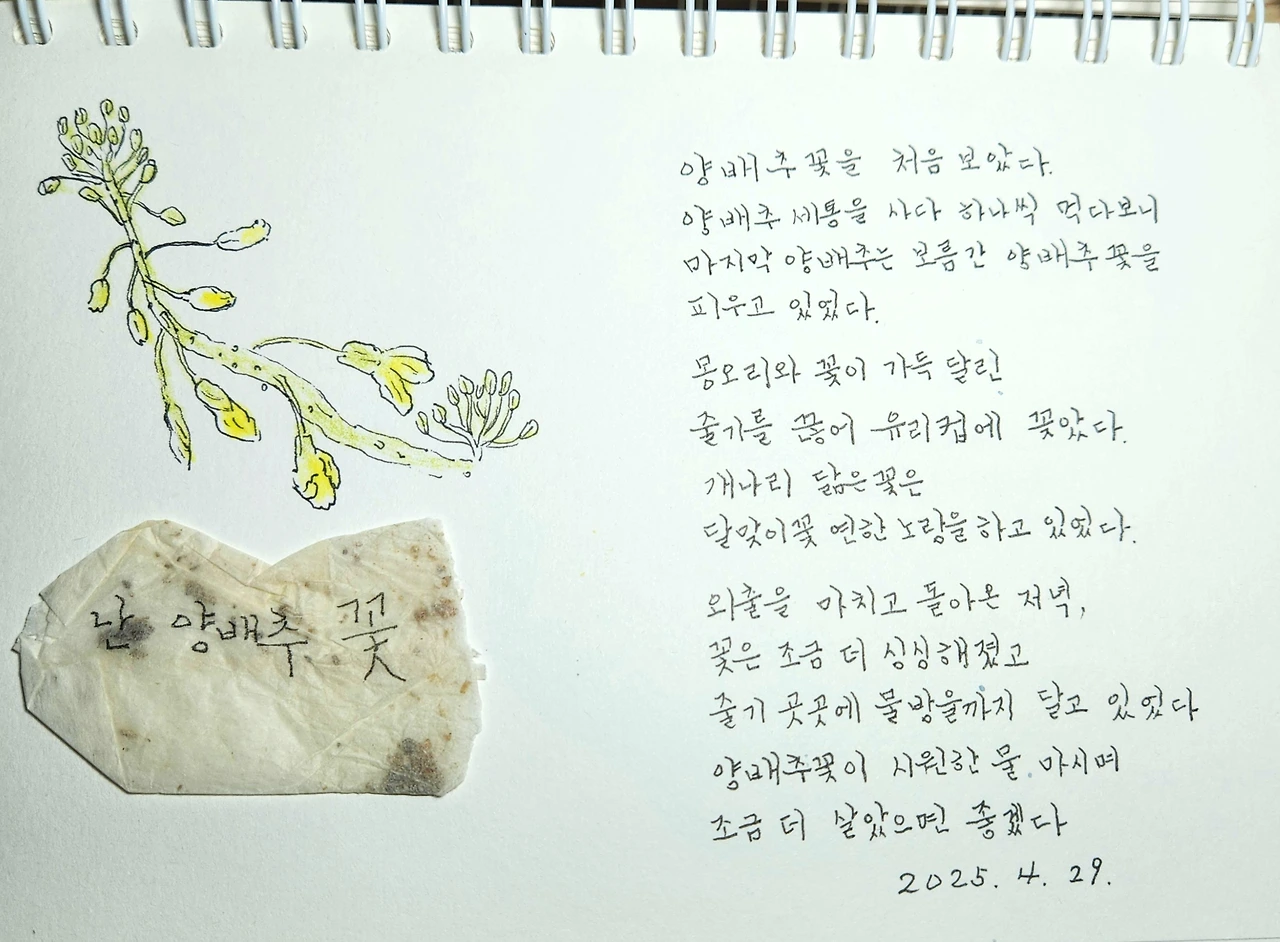 난 양배추 꽃
양배추꽃을 처음 보았다.
양배추 세통을 사다 하나씩 먹다보니
마지막 양배추는 보름간 양배추꽃을
피우고 있었다.
몽오리와 꽃이 가득 달린
줄기를 끊어 유리컵에 꽂았다.
개나리 닮은꽃은
달맞이꽃 연한 노랑을하고 있었다.
외출을 마치고 돌아온 저녁,
꽃은 조금 더 싱싱해졌고
줄기 곳곳에 물방울까지 달고 있었다
양배추꽃이 시원한 물 마시며
조금 더 살았으면 좋겠다
2025. 4. 29.